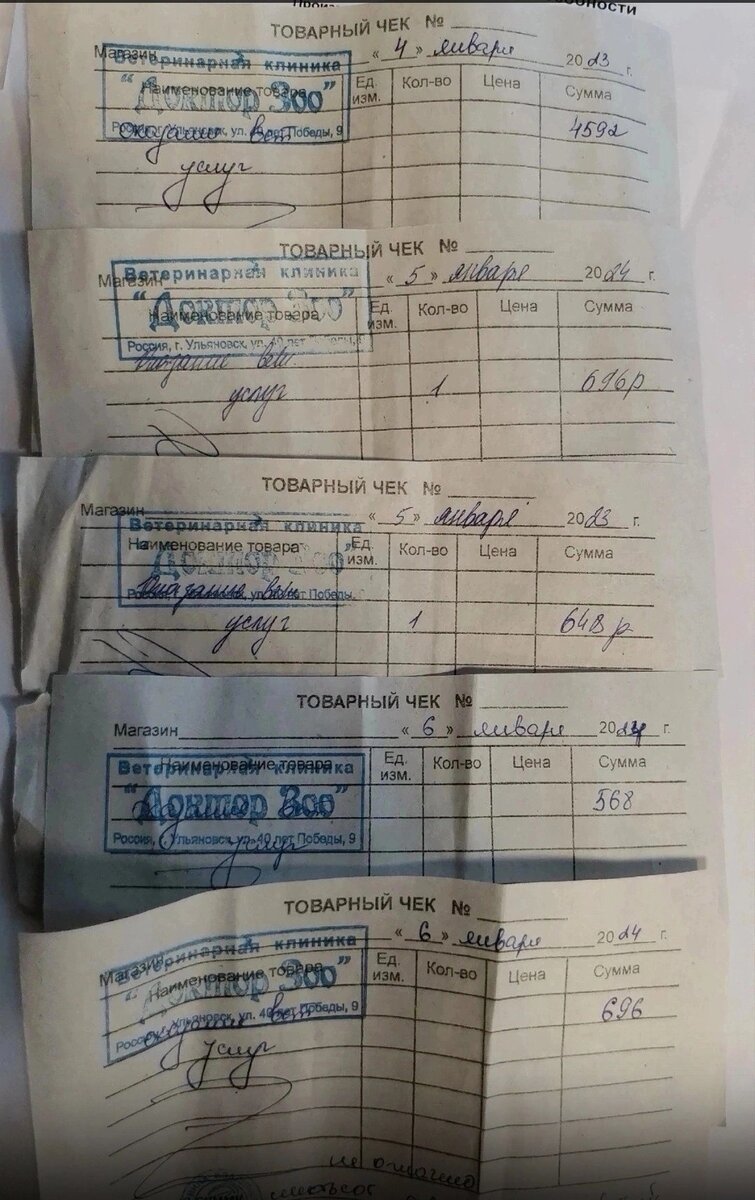 ТОВАРНЫЙ ЧЕК №
Магазин « 4 » января 2023 г.
Ветеринарная клиника
Наименование товара Ед. изм. Кол-во Цена Сумма
"Доктор Зоо"
Ульяновск, ул. 40 лет Победы, 9
вет 4592
услуг
ТОВАРНЫЙ ЧЕК №
Магазин « 5 » января 2024 г.
Ветеринарная клиника
"Доктор Зоо"
Наименование товара Ед. изм. Кол-во Цена Сумма
Россия, г. Ульяновск, ул. 40 лет Победы,
Оказание вет.
услуг 1 696р
ТОВАРНЫЙ ЧЕК №
Магазин « 5 » января 2023 г.
Ветеринарная клиника
Наименование товара Ед. изм. Кол-во Цена Сумма
"Доктор Зоо"
Оказание вет
услуг 1 648 р
ТОВАРНЫЙ ЧЕК №
Магазин « 6 » января 2024 г.
Наименование товара Ед. изм. Кол-во Цена Сумма
Ветеринарная клиника
"Доктор Зоо" 568
Россия, г. Ульяновск, ул. 40 лет Победы, 9
услуг
ТОВАРНЫЙ ЧЕК №
Магазин « 6 » января 2024 г.
Ветеринарная клиника
Наименование товара Ед. изм. Кол-во Цена Сумма
"Доктор Зоо"
Ульяновск, ул. 40 лет Победы, 9 696
вет
услуг